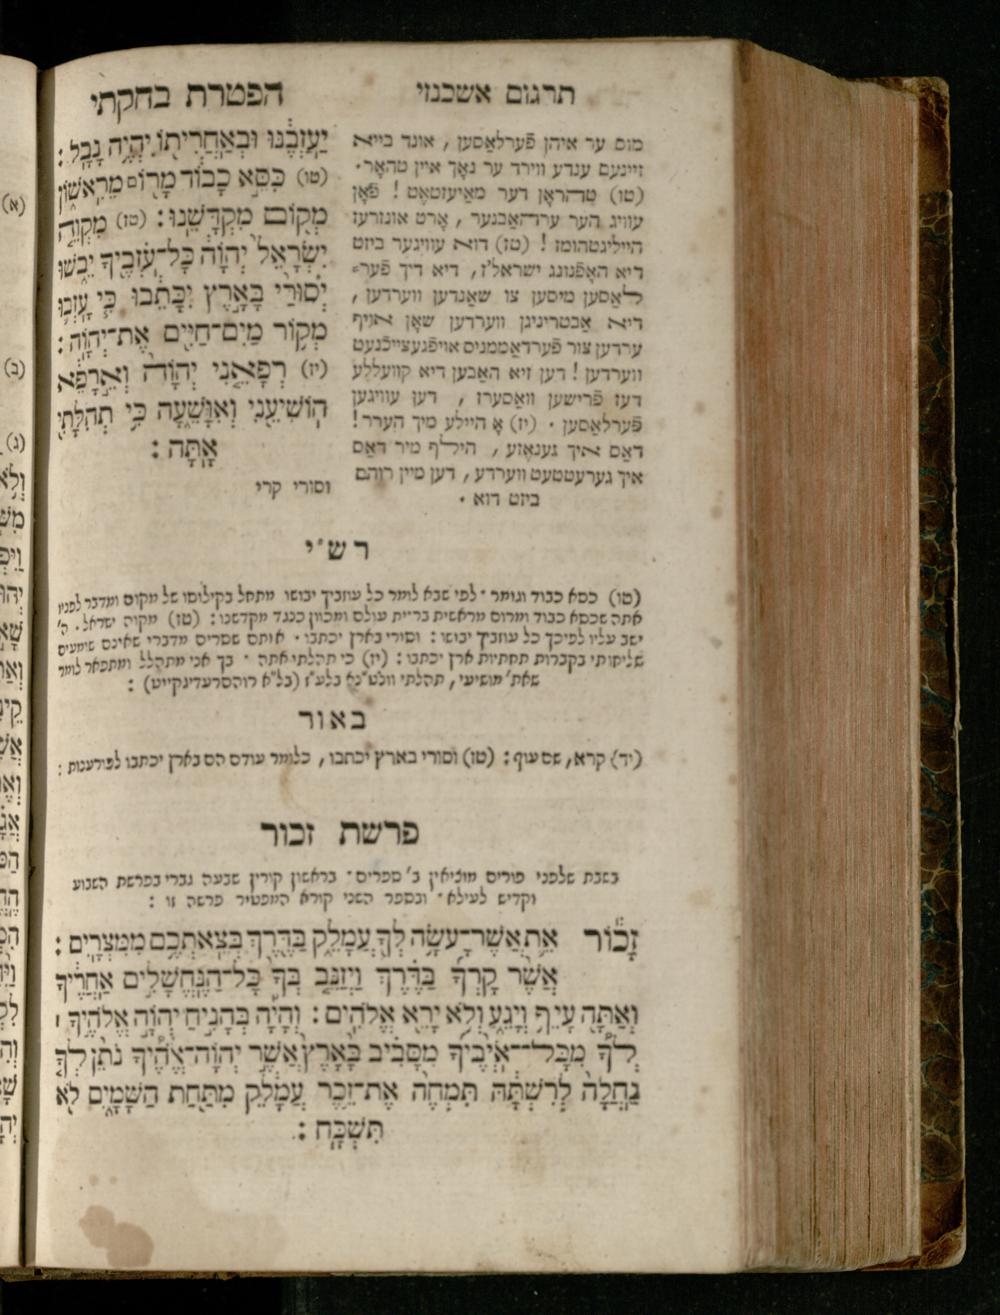 הפטרת בחקתי
תרגום אשכנזי
יַעַזְבֶנּוּ וּבְאַחֲרִיתוֹ יִהְיֶה נָבָל :
(טו) כִּסֵּא כָבוֹד מָרוֹם מֵרִאשׁוֹן
מְקוֹם מִקְדָּשֵׁנוּ : (טז) מִקְוֵה
יִשְׂרָאֵל יְהוָֹה כָּל־עֹזְבֶיךָ יֵבֹשׁוּ
יְסוּרַי בָּאָרֶץ יִכָּתֵבוּ כִּי עָזְבוּ
מְקוֹר מַיִם־חַיִּים אֶת־יְהוָֹה :
(יז) רְפָאֵנִי יְהוָֹה וְאֵרָפֵא
הוֹשִׁיעֵנִי וְאִוָּשֵׁעָה כִּי תְהִלָּתִי
אָתָּה :
וסורי קרי
מוס ער איהן פֿערלאַסען , אונד בייא
זיינעם ענדע ווירד ער נאָך איין טהאָר .
(טו) טהראָן דער מאַיעזטאֶט ! פֿאָן
עוויג הער ערהאַבנער , אָרט אונזרעז
הייליגטהומז ! (טז) דוא עוויגער ביזט
דיא האָפֿנונג ישראל'ז , דיא דיך פֿער־
לאַסען מיסען צו שאַנדען ווערדען ,
דיא אַבטריניגן ווערדען שאָן אויף
ערדען צור פֿערדאַממניס אויפֿגעצייכֿנעט
ווערדען ! דען זיא האַבען דיא קוועללע
דעז פֿרישען וואַסערז , דען עוויגען
פֿערלאַסען . (יז) אָ היילע מיך הערר !
דאַס איך גענאֶזע , הילף מיר דאַס
איך גערעטטעט ווערדע , דען מיין רוהם
ביזט דוא .
רש״י
(טו) כסא כבוד וגומר . לפי שבא לומר כל עוזביך יבושו מתחל בקילוסו של מקום ומדבר לפניו
אתה שכסא כבוד ומרום מראשית ברית עולם ומכוון כנגד מקדשנו : (טז) מקוה ישראל . ה'
ישב עליו לפיכך כל עוזביך יבושו : וסורי בארץ יכתבו . אותם שסרים מדברי שאינם שומעים
שליחותי בקברות תחתיות ארץ יכתבו : (יז) כי תהלתי אתה . בך אני מתהלל ומתפאר לומר
שאת' מושיעי , תהלתי וולט״נא בלע״ז (בל״א רוהסרעדינקייט) :
באור
(יד) קרא , שם עוף : (טז) וסורי בארץ יכתבו , כלומר עודם הם בארץ יכתבו לפורענות :
פרשת זכור
בשבת שלפני פורים מוציאין ב' ספרים . בראשון קורין שבעה גברי בפרשת השבוע
וקדיש לעילא . ובספר השני קורא המפטיר פרשה זו :
זָכוֹר אֵת אֲשֶׁר־עָשָׂה לְךָ עֲמָלֵק בַּדֶּרֶךְ בְּצֵאתְכֶם מִמִּצְרָיִם :
אֲשֶׁר קָרְךָ בַּדֶּרֶךְ וַיְזַנֵּב בְּךָ כָּל־הַנֶּחֱשָׁלִים אַחֲרֶיךָ
וְאַתָּה עָיֵף וְיָגֵעַ וְלֹא יָרֵא אֱלֹהִים : וְהָיָה בְּהָנִיחַ יְהוָֹה אֱלֹהֶיךָ ׀
לְךָ מִכָּל־אֹיְבֶיךָ מִסָּבִיב בָּאָרֶץ אֲשֶׁר יְהוָֹה־אֱלֹהֶיךָ נֹתֵן לְךָ
נַחֲלָה לְרִשְׁתָּהּ תִּמְחֶה אֶת־זֵכֶר עֲמָלֵק מִתַּחַת הַשָּׁמָיִם לֹא
תִּשְׁכָּח :